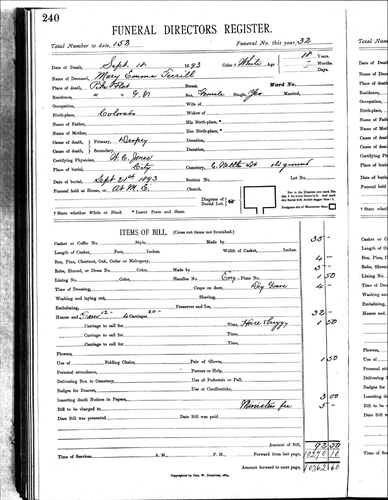 240
FUNERAL DIRECTORS REGISTER.
Total Number to date, 153 Funeral No. this year, 32
Date of Death, Sept. 18 1893 Color † White Age 18 Years. Months. Days.
Name of Deceased, Mary Emma Terrill
Place of death, Street. Ward No.
Residence, " " Sex, Female Single, Yes Married,
Occupation, Wife of
Birth-place, * Colorado Widow of
Name of Father, His Birth-place, *
Name of Mother, Her Birth-place, *
Cause of death, Primary, Dropsy Duration,
Cause of death, Secondary, Duration,
Certifying Physician, W. C. Jones
Place of burial, City Cemetery,
Date of burial, Sept 21st 1893 Section No. Lot No.
Funeral held at Home, or At M. E. Church.
Diagram of Burial Lot.
Put in the Diagram mark the
† State whether White or Black. * Insert Town and State.
ITEMS OF BILL. (Cross out items not furnished.)
Casket or Coffin No. Style, Made by 35 –
Length of Casket, Feet, Inches. Width of Casket, Inches.
Box, Pine, Chestnut, Oak, Cedar or Mahogany, 4 –
Robe, Shroud, or Dress No. Color, Made by 5 –
Lining No. Color, Handles No. Eng. Plate No. 1 50
Time of Dressing, Crape on door, 4 –
Washing and laying out, Shaving,
Embalming, Preserver and Ice,
Hearse and 12– Carriages 20– 32 –
Carriage to call for Time, 1 50
Carriage to call for Time,
Carriage to call for Time,
Flowers,
Use of Folding Chairs, Pair of Gloves, 1 50
Personal attendance, Porters or Help,
Delivering Box to Cemetery, Use of Pedestals or Pall,
Badges for Bearers, Use of Candlesticks,
Inserting death Notices in Papers, 3 00
Bill to be charged to Minister fee 5 –
Date Bill was presented Date Bill was paid
Amount of Bill, 92 50
Time of Services, Forward from last page, 10270 10
Amount forward to next page, 10362 60